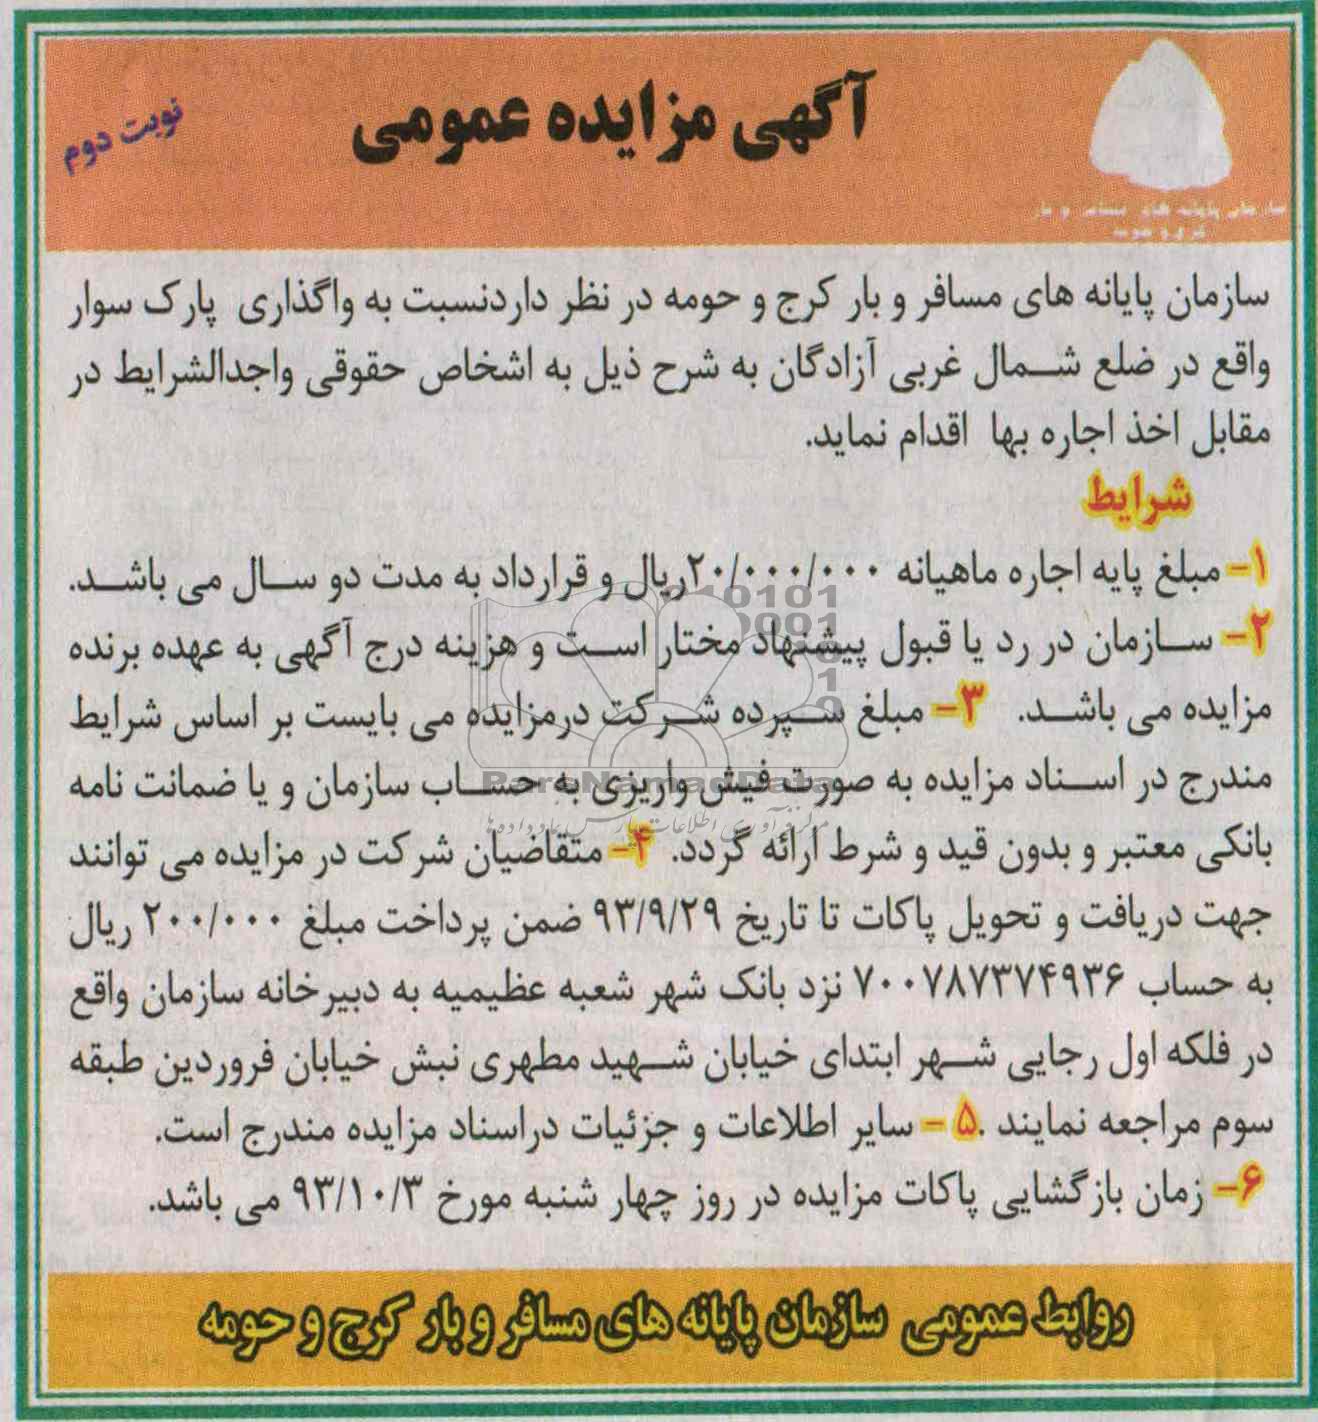 آگهی مزایده عمومی
نوبت دوم
سازمان پایانه های مسافر و بار
کرج و حومه
سازمان پایانه های مسافر و بار کرج و حومه در نظر داردنسبت به واگذاری پارک سوار
واقع در ضلع شمال غربی آزادگان به شرح ذیل به اشخاص حقوقی واجدالشرایط در
مقابل اخذ اجاره بها اقدام نماید.
شرایط
۱- مبلغ پایه اجاره ماهیانه ۲۰/۰۰۰/۰۰۰ریال و قرارداد به مدت دو سال می باشد.
۲- سازمان در رد یا قبول پیشنهاد مختار است و هزینه درج آگهی به عهده برنده
مزایده می باشد. ۳- مبلغ سپرده شرکت درمزایده می بایست بر اساس شرایط
مندرج در اسناد مزایده به صورت فیش واریزی به حساب سازمان و یا ضمانت نامه
بانکی معتبر و بدون قید و شرط ارائه گردد. ۴- متقاضیان شرکت در مزایده می توانند
جهت دریافت و تحویل پاکات تا تاریخ ۹۳/۹/۲۹ ضمن پرداخت مبلغ ۲۰۰/۰۰۰ ریال
به حساب ۷۰۰۷۸۷۳۷۴۹۳۶ نزد بانک شهر شعبه عظیمیه به دبیرخانه سازمان واقع
در فلکه اول رجایی شهر ابتدای خیابان شهید مطهری نبش خیابان فروردین طبقه
سوم مراجعه نمایند .۵- سایر اطلاعات و جزئیات دراسناد مزایده مندرج است.
۶- زمان بازگشایی پاکات مزایده در روز چهار شنبه مورخ ۹۳/۱۰/۳ می باشد.
روابط عمومی سازمان پایانه های مسافر و بار کرج و حومه
ParsNamadData